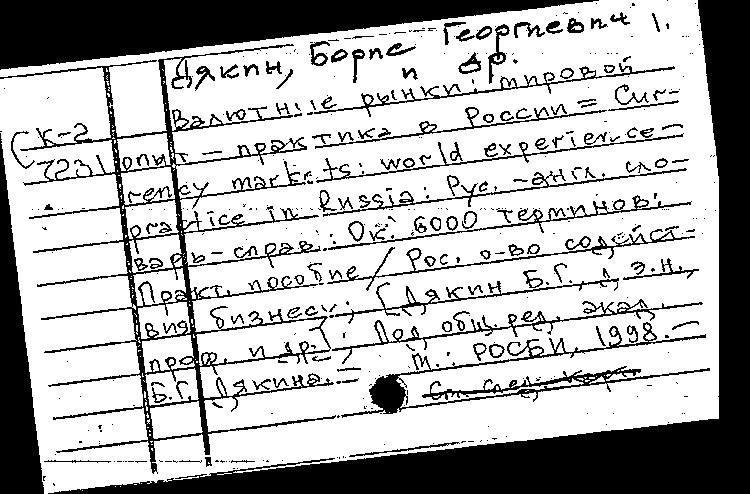 Дякин, Борис Георгиевич 1.
и др.
Валютные рынки: мировой
СК-2
7231 опыт — практика в России = Cur-
rency markets: world experience —
practice in Russia: Рус.-англ. сло-
варь-справ.: Ок. 6000 терминов:
Практ. пособие / Рос. о-во содейст-
вия бизнесу; [Дякин Б.Г., д.э.н.,
проф. и др.]; Под общ. ред. акад.
Б.Г. Дякина. — М.: РОСБИ, 1998. —
См. след. карт.